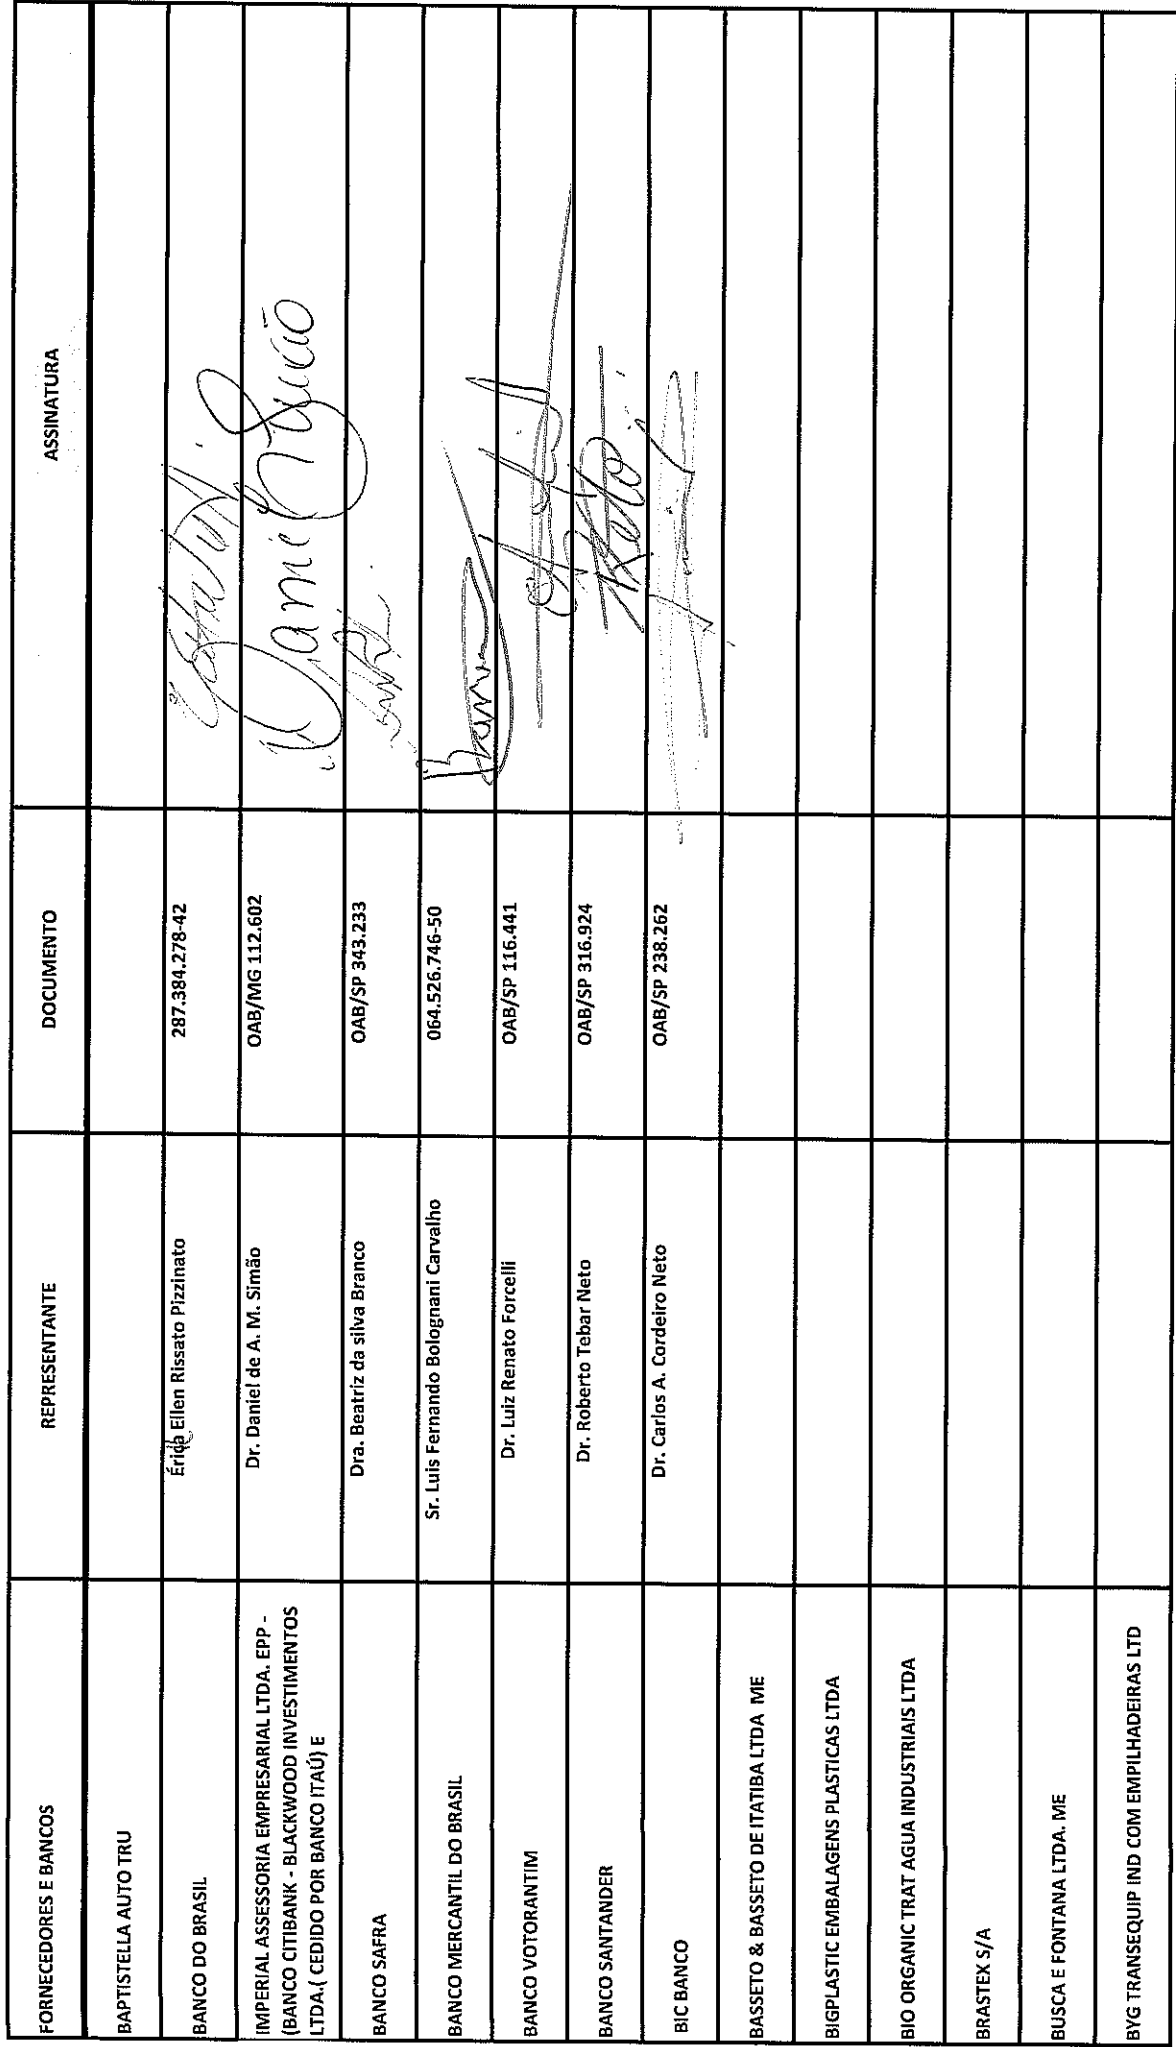 FORNECEDORES E BANCOS REPRESENTANTE DOCUMENTO ASSINATURA
BAPTISTELLA AUTO TRU
BANCO DO BRASIL Érica Ellen Rissato Pizzinato 287.384.278-42
IMPERIAL ASSESSORIA EMPRESARIAL LTDA. EPP - Dr. Daniel de A. M. Simão OAB/MG 112.602
(BANCO CITIBANK - BLACKWOOD INVESTIMENTOS
LTDA.( CEDIDO POR BANCO ITAÚ) E
BANCO SAFRA Dra. Beatriz da silva Branco OAB/SP 343.233
BANCO MERCANTIL DO BRASIL Sr. Luis Fernando Bolognani Carvalho 064.526.746-50
BANCO VOTORANTIM Dr. Luiz Renato Forcelli OAB/SP 116.441
BANCO SANTANDER Dr. Roberto Tebar Neto OAB/SP 316.924
BIC BANCO Dr. Carlos A. Cordeiro Neto OAB/SP 238.262
BASSETO & BASSETO DE ITATIBA LTDA ME
BIGPLASTIC EMBALAGENS PLASTICAS LTDA
BIO ORGANIC TRAT AGUA INDUSTRIAIS LTDA
BRASTEX S/A
BUSCA E FONTANA LTDA. ME
BYG TRANSEQUIP IND COM EMPILHADEIRAS LTD